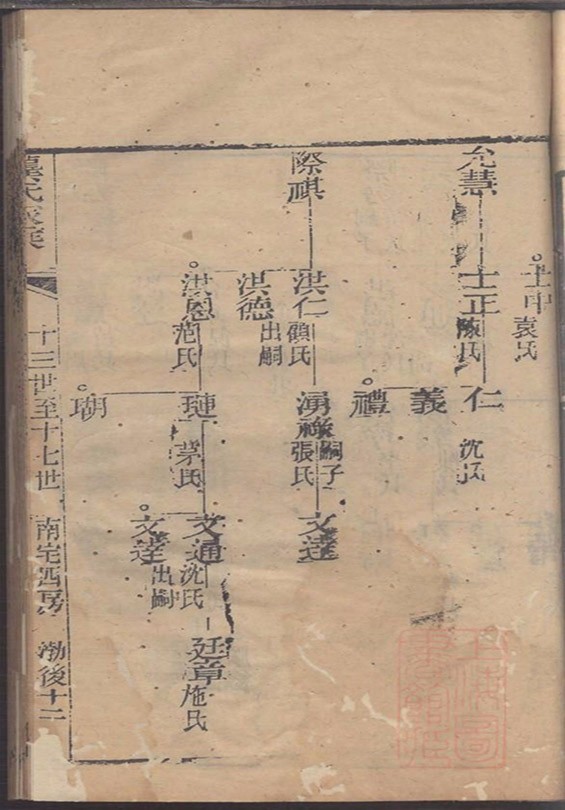 士中
袁氏
允慧
士正
陳氏
仁
沈氏
義
禮
際祺
洪仁
顧氏
湧祿
嗣子
張氏
文達
洪德
出嗣
洪恩
范氏
璉
茅氏
文通
沈氏
廷章
施氏
文達
出嗣
瑚
龔氏家乘
十三世至十七世
南宅西房
渤後十二